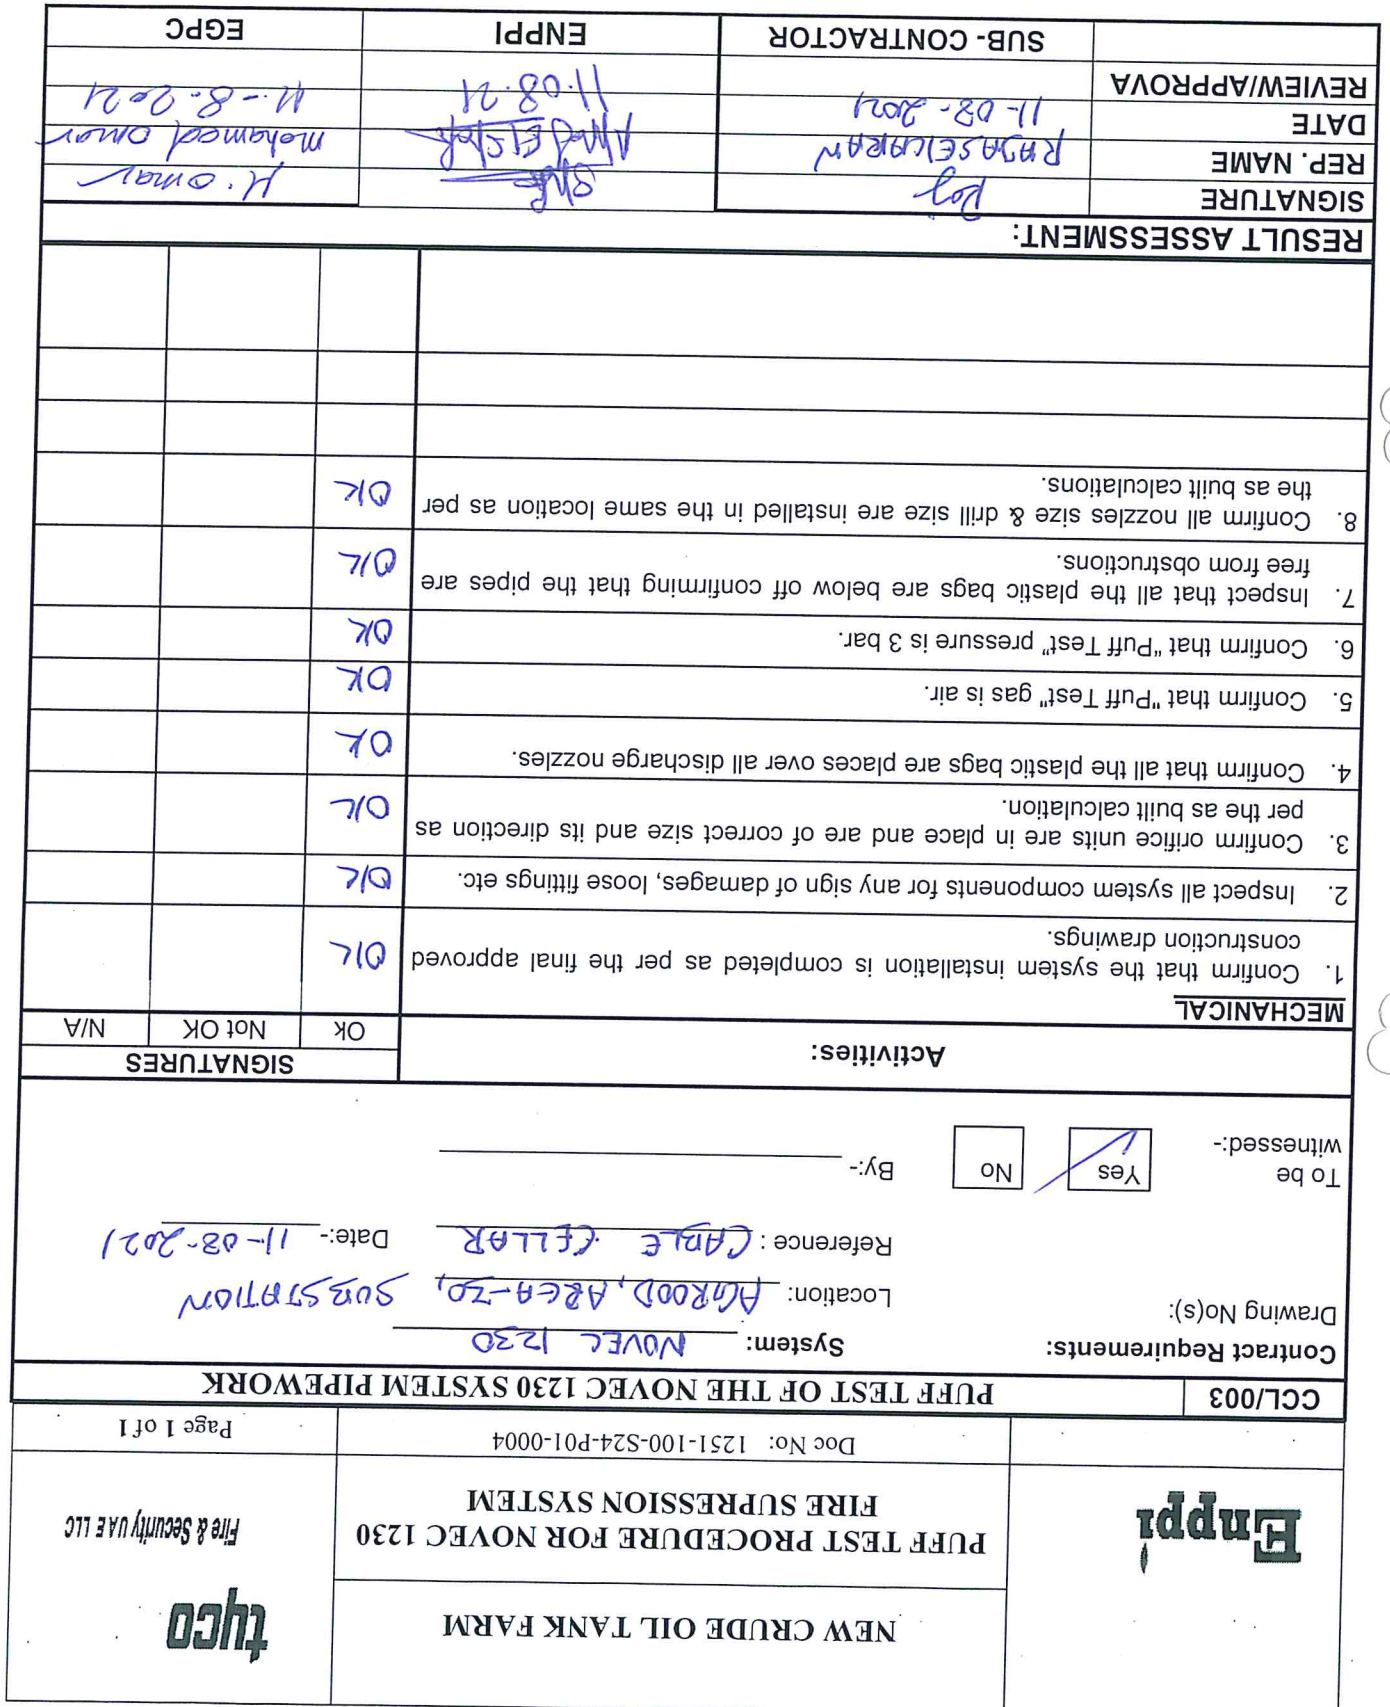 NEW CRUDE OIL TANK FARM
Enppi
tyco
Fire & Security UAE LLC
PUFF TEST PROCEDURE FOR NOVEC 1230
FIRE SUPRESSION SYSTEM
Doc No: 1251-100-S24-P01-0004
Page 1 of 1
CCL/003 PUFF TEST OF THE NOVEC 1230 SYSTEM PIPEWORK
Contract Requirements: System: NOVEC 1230
Drawing No(s): Location: AGROOD, AREA-70, SUBSTATION
Reference: CABLE CELLAR Date:- 11-08-2021
To be
witnessed:- Yes No By:-
Activities: SIGNATURES
Ok Not OK N/A
MECHANICAL
1. Confirm that the system installation is completed as per the final approved
construction drawings. OK
2. Inspect all system components for any sign of damages, loose fittings etc. OK
3. Confirm orifice units are in place and are of correct size and its direction as
per the as built calculation. OK
4. Confirm that all the plastic bags are places over all discharge nozzles. OK
5. Confirm that "Puff Test" gas is air. OK
6. Confirm that "Puff Test" pressure is 3 bar. OK
7. Inspect that all the plastic bags are below off confirming that the pipes are
free from obstructions. OK
8. Confirm all nozzles size & drill size are installed in the same location as per
the as built calculations. OK
RESULT ASSESSMENT:
SIGNATURE Raj M. omar
REP. NAME RAJASEKARAN mohamed omar
DATE 11-08-2021 11.08.21 11-8-2021
REVIEW/APPROVA
SUB- CONTRACTOR ENPPI EGPC